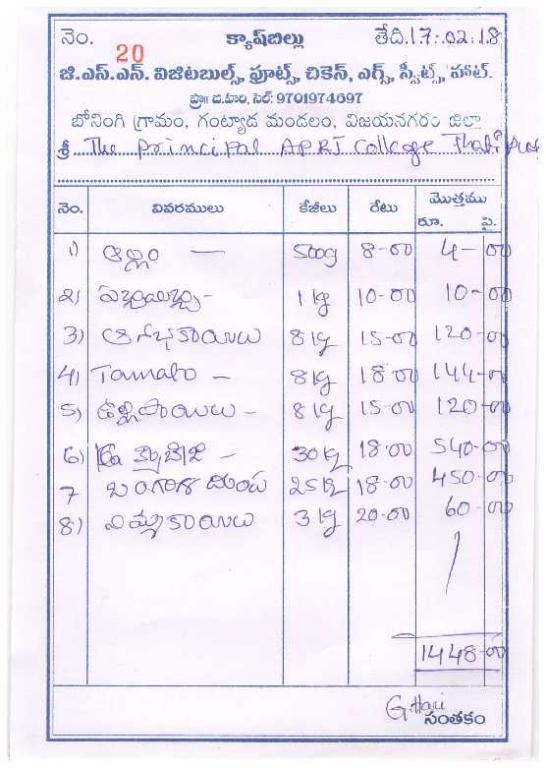 నెం. 20 క్యాష్‌బిల్లు తేది.17.02.18
జి.ఎస్.ఎన్. విజిటబుల్స్, ఫ్రూట్స్, చికెన్, ఎగ్స్, స్వీట్స్, హాట్.
ప్రొ॥ జి.హరి, సెల్: 9701974697
బోనింగి గ్రామం, గంట్యాడ మండలం, విజయనగరం జిల్లా
శ్రీ The principal APRJ College
నెం. వివరములు కేజీలు రేటు మొత్తము
రూ. పై.
1) అల్లం — 500g 8-00 4-00
2) 1 kg 10-00 10-00
3) 8 kg 15-00 120-00
4) Tamato - 8 kg 18-00 144-00
5) ఉల్లిపాయలు - 8 kg 15-00 120-00
6) క్యాబేజి - 30 kg 18-00 540-00
7 బంగాళదుంప 25 kg 18-00 450-00
8) నిమ్మకాయలు 3 kg 20-00 60-00
1448-00
G. Hari
సంతకం